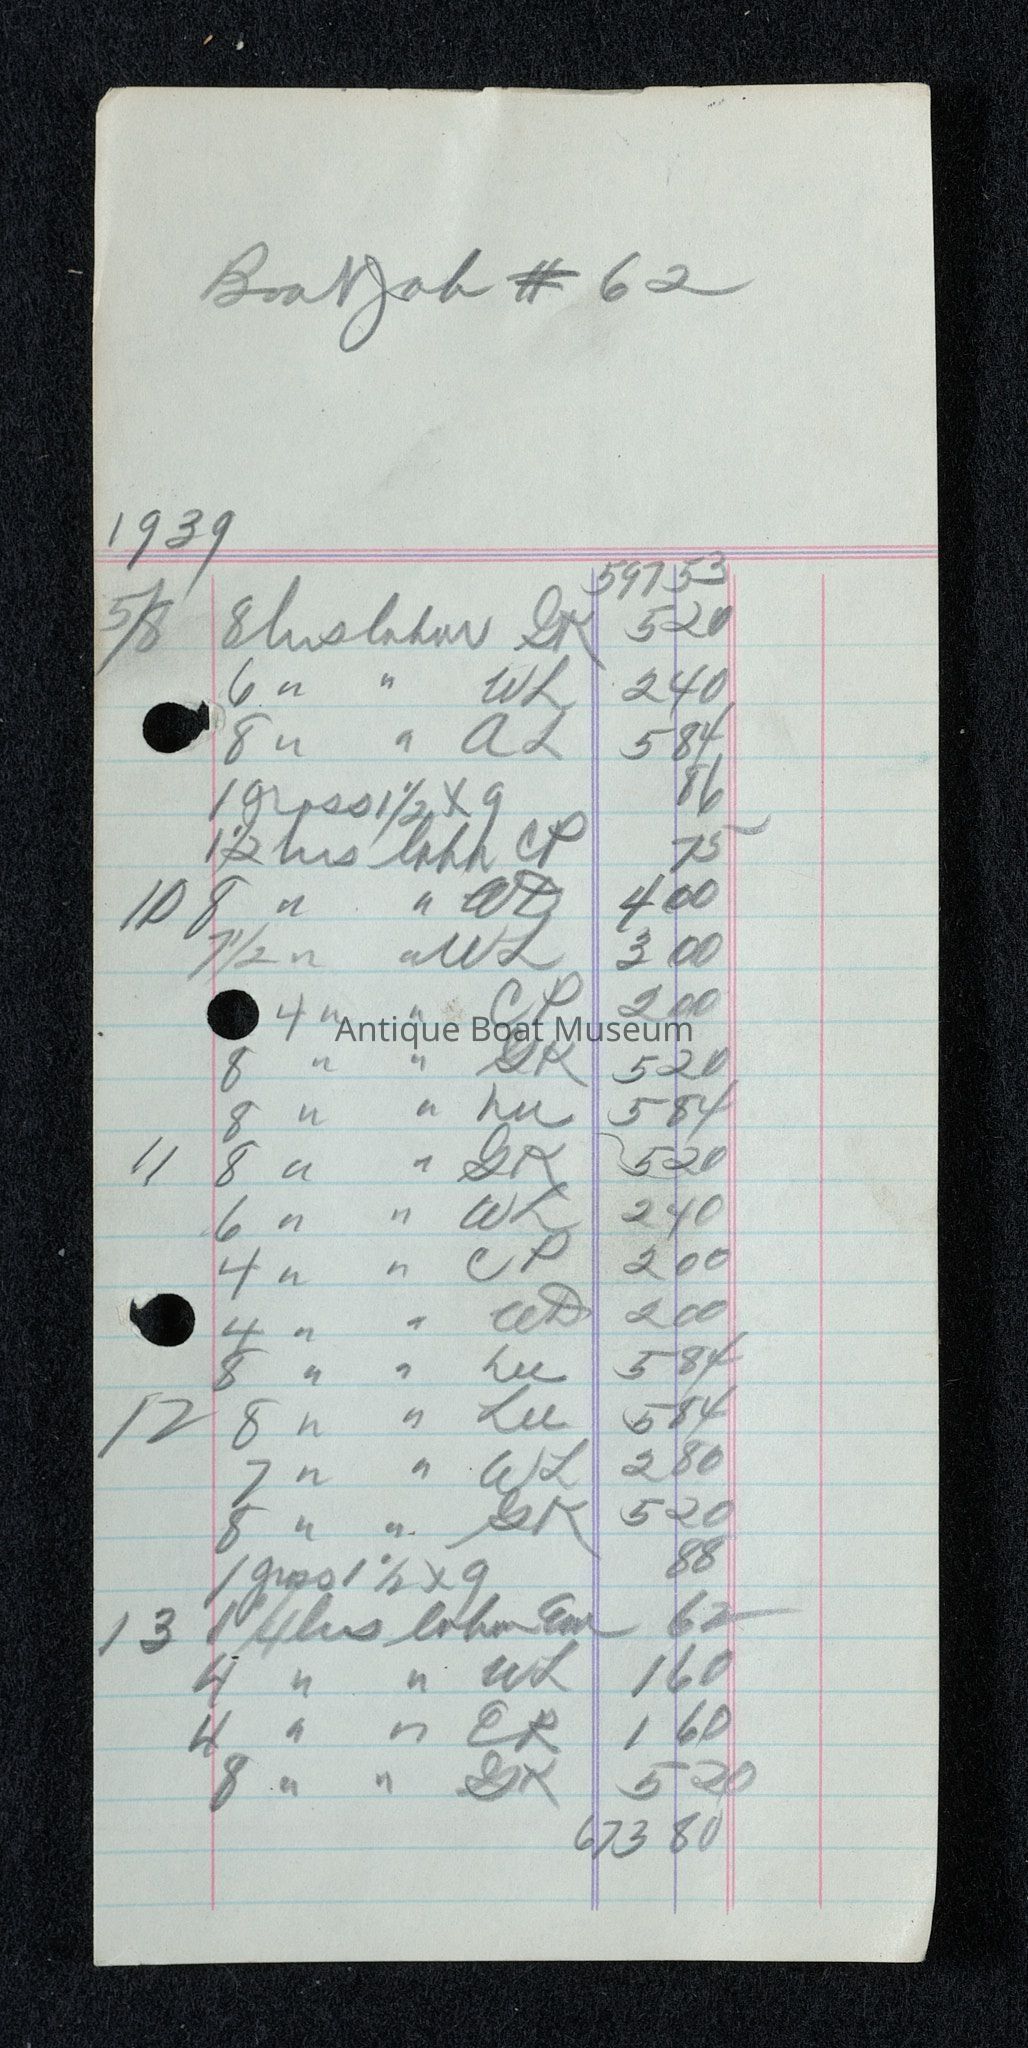 Boat Job # 62
1939
597 53
5/8 8 hrs labor GK 5 20
6 " " WL 2 40
8 " " AL 5 84
1 gross 1 1/2 x 9 86
1 1/2 hrs labor CP 75
10 8 " " WD 4 00
7 1/2 " " WL 3 00
4 " " CP 2 00
Antique Boat Museum
8 " " GK 5 20
8 " " Lee 5 84
11 8 " " GK 5 20
6 " " WL 2 40
4 " " CP 2 00
4 " " WD 2 00
8 " " Lee 5 84
12 8 " " Lee 5 84
7 " " WL 2 80
8 " " GK 5 20
1 gross 1 1/2 x 9 88
13 1 1/4 hrs labor 62
4 " " WL 1 60
4 " " CR 1 60
8 " " GK 5 20
673 80